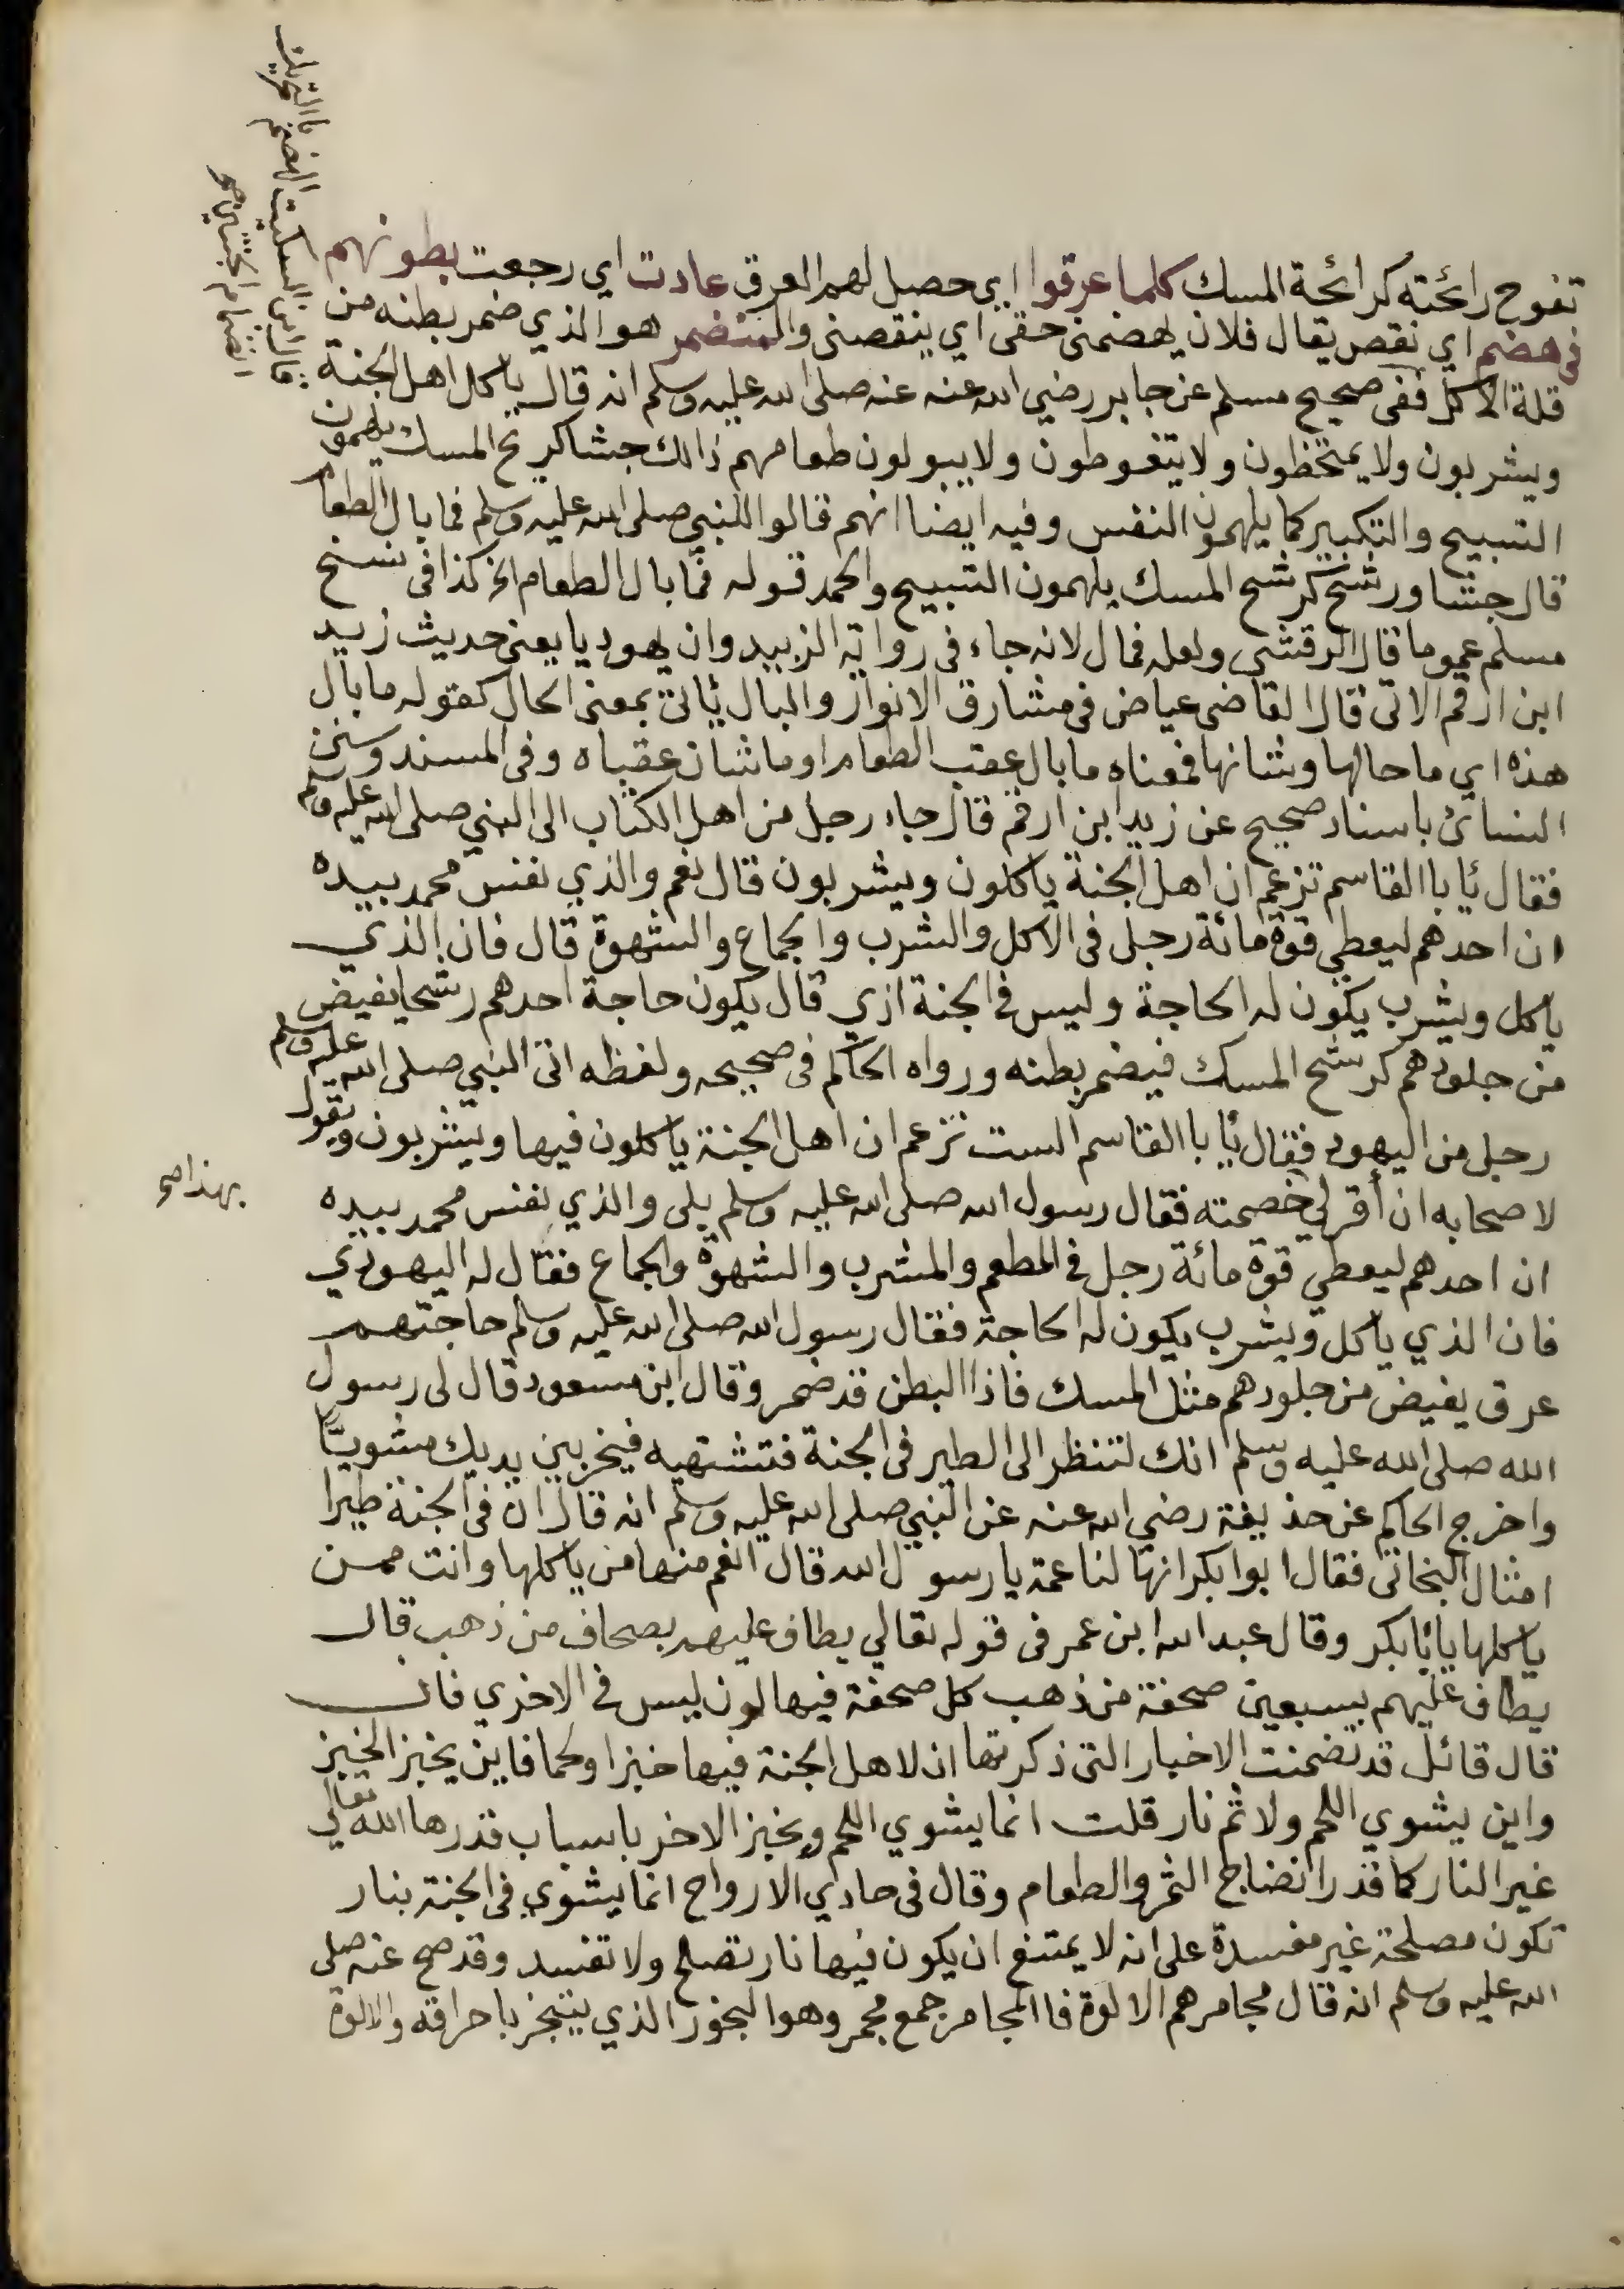 تفوح رائحته كرائحة المسك كلما عرقوا اي حصل لهم العرق عادت اي رجعت بطونهم
في هضم اي نقص يقال فلان يهضمني حقي اي ينقصني والمتضمر هو الذي ضمر بطنه من
قلة الاكل ففي صحيح مسلم عن جابر رضي الله عنه عنه صلى الله عليه وسلم انه قال ياكل اهل الجنة
ويشربون ولا يمتخطون ولا يتغوطون ولا يبولون طعامهم ذالك جشا كريح المسك يلهمون
التسبيح والتكبير كما يلهمون النفس وفيه ايضا انهم قالوا للنبي صلى الله عليه وسلم فما بال الطعام
قال جشا ورشح كرشح المسك يلهمون التسبيح والحمد قوله فما بال الطعام الخ كذا في نسخ
مسلم عموما قال الرقشي ولعله فمال لانه جاء في رواية الزبيد وان يهوديا يعني حديث زيد
ابن ارقم الاتي قال القاضي عياض في مشارق الانوار والبال ياتي بمعنى الحال كقوله ما بال
هذه اي ما حالها وشانها فمعناه ما بال عقب الطعام او ما شان عقباه وفي المسند وسنن
النسائ باسناد صحيح عن زيد ابن ارقم قال جاء رجل من اهل الكتاب الى النبي صلى الله عليه وسلم
فقال يابا القاسم تزعم ان اهل الجنة ياكلون ويشربون قال نعم والذي نفس محمد بيده
ان احدهم ليعطي قوة مائة رجل في الاكل والشرب والجماع والشهوة قال فان الذي
ياكل ويشرب يكون له الحاجة وليس في الجنة اذي قال يكون حاجة احدهم رشحا يفيض
من جلودهم كرشح المسك فيضمر بطنه ورواه الحاكم في صحيحه ولفظه اتى النبي صلى الله عليه وسلم
رجل من اليهود فقال يابا القاسم الست تزعم ان اهل الجنة ياكلون فيها ويشربون ويقول
لاصحابه ان أقر لي خصمته فقال رسول الله صلى الله عليه وسلم بلى والذي نفس محمد بيده
بهذا صح
ان احدهم ليعطي قوة مائة رجل في المطعم والمشرب والشهوة والجماع فقال له اليهودي
فان الذي ياكل ويشرب يكون له الحاجة فقال رسول الله صلى الله عليه وسلم حاجتهم
عرق يفيض من جلودهم مثل المسك فاذا البطن قد ضمر وقال ابن مسعود قال لي رسول
الله صلى الله عليه وسلم انك لتنظر الى الطير في الجنة فتشتهيه فيخر بين يديك مشويًّا
واخرج الحاكم عن حذيفة رضي الله عنه عن النبي صلى الله عليه وسلم انه قال ان في الجنة طيرا
امثال البخاتي فقال ابوا بكر انها لناعمة يا رسول الله قال انعم منها من ياكلها وانت ممن
ياكلها يا ابا بكر وقال عبد الله ابن عمر في قوله تعالي يطاف عليهم بصحاف من ذهب قال
يطاف عليهم بسبعين صحفة من ذهب كل صحفة فيها لون ليس في الاخري فان
قال قائل قد تضمنت الاخبار التي ذكرتها ان لاهل الجنة فيها خبزا ولحما فاين يخبز الخبز
واين يشوي اللحم ولا ثم نار قلت انما يشوي اللحم ويخبز الاخر باسباب قدرها الله تعالي
غير النار كما قدر انضاج الثمر والطعام وقال في حادي الارواح انما يشوي في الجنة بنار
تكون مصلحة غير مفسدة على انه لا يمتنع ان يكون فيها نار تصلح ولا تفسد وقد صح عنه صلى
الله عليه وسلم انه قال مجامرهم الالوة فاالمجامر جمع مجمر وهو البخور الذي يتبخر باحراقه والالوة
قال ابن السكيت الهضم باالتحريك
انضمام الجنبين صح